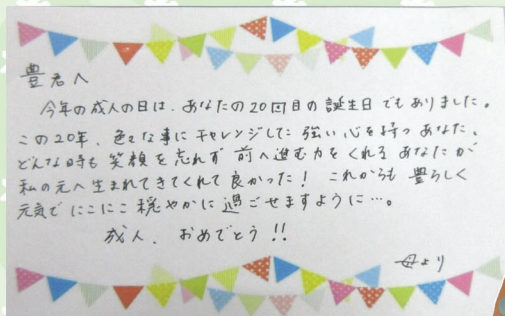 豊君へ
今年の成人の日は、あなたの20回目の誕生日でもありました。
この20年、色々な事にチャレンジした強い心を持つあなた、
どんな時も笑顔を忘れず前へ進む力をくれるあなたが
私の元へ生まれてきてくれて良かった！これからも豊らしく
元気でにこにこ穏やかに過ごせますように…。
成人、おめでとう!!
母より